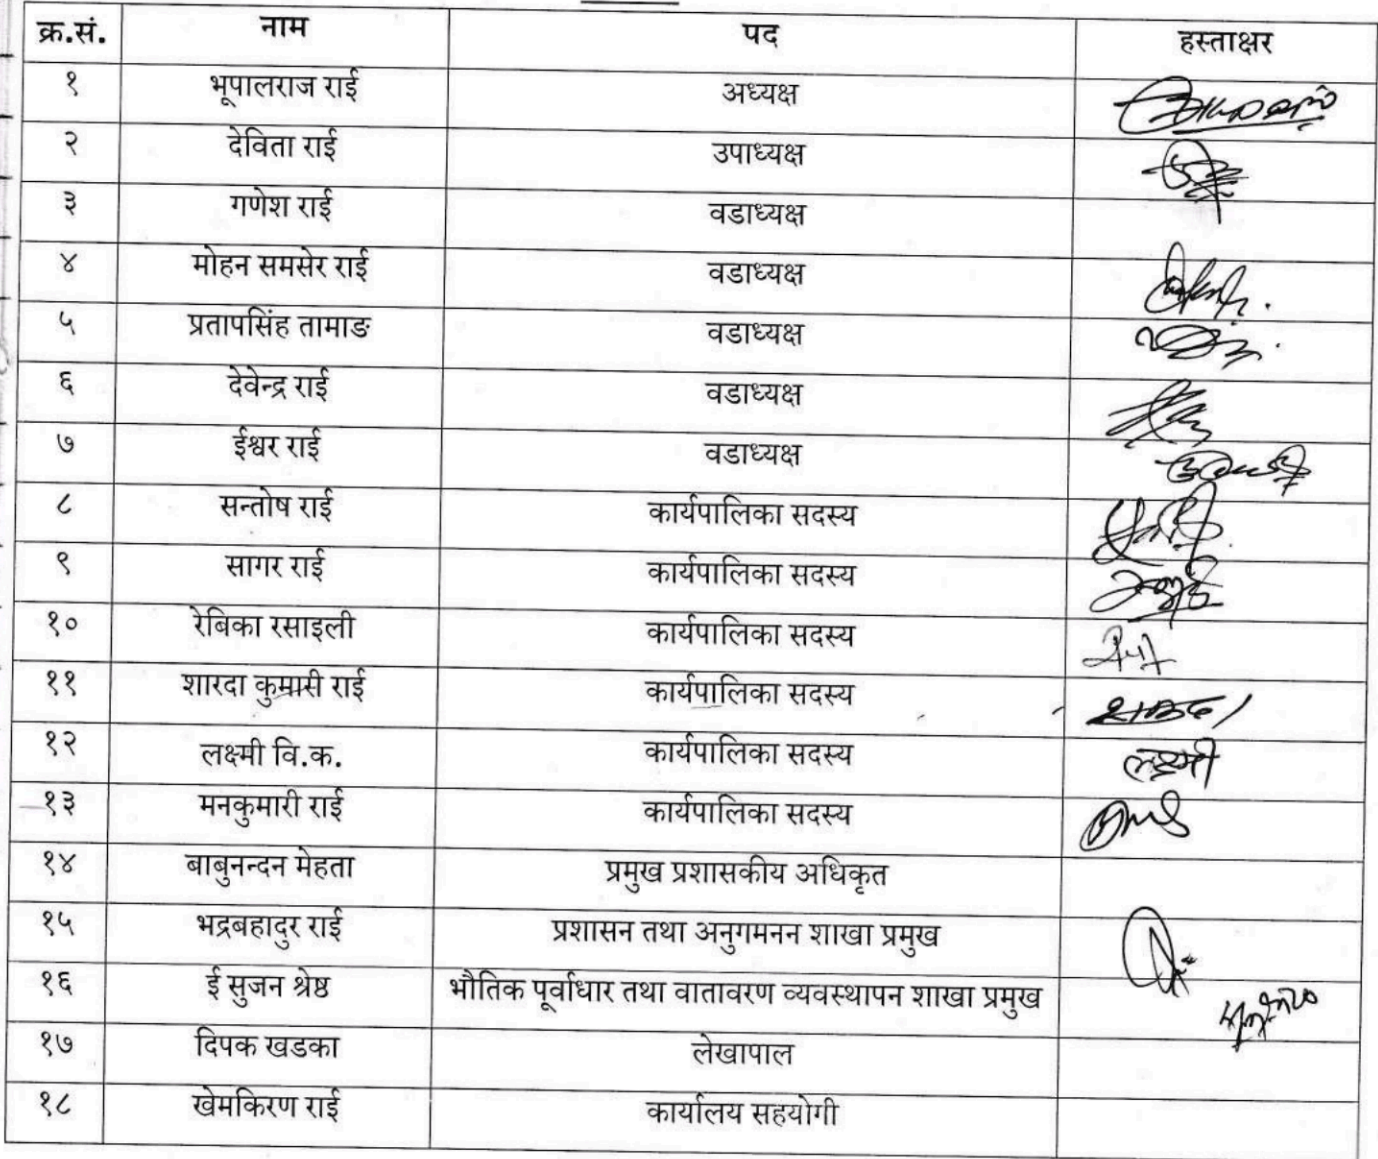 क्र.सं. नाम पद हस्ताक्षर
१ भूपालराज राई अध्यक्ष
२ देविता राई उपाध्यक्ष
३ गणेश राई वडाध्यक्ष
४ मोहन समसेर राई वडाध्यक्ष
५ प्रतापसिंह तामाङ वडाध्यक्ष
६ देवेन्द्र राई वडाध्यक्ष
७ ईश्वर राई वडाध्यक्ष
८ सन्तोष राई कार्यपालिका सदस्य
९ सागर राई कार्यपालिका सदस्य
१० रेबिका रसाइली कार्यपालिका सदस्य
११ शारदा कुमारी राई कार्यपालिका सदस्य शारदा
१२ लक्ष्मी वि.क. कार्यपालिका सदस्य लक्ष्मी
१३ मनकुमारी राई कार्यपालिका सदस्य
१४ बाबुनन्दन मेहता प्रमुख प्रशासकीय अधिकृत
१५ भद्रबहादुर राई प्रशासन तथा अनुगमनन शाखा प्रमुख
१६ ई सुजन श्रेष्ठ भौतिक पूर्वाधार तथा वातावरण व्यवस्थापन शाखा प्रमुख
१७ दिपक खडका लेखापाल
१८ खेमकिरण राई कार्यालय सहयोगी